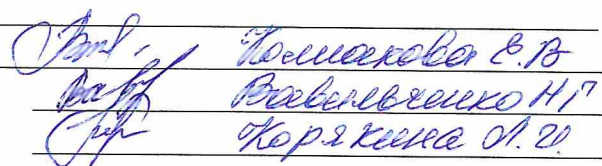 Колмакова Е.В
Вавильченко Н Г
Корякина Л.И.